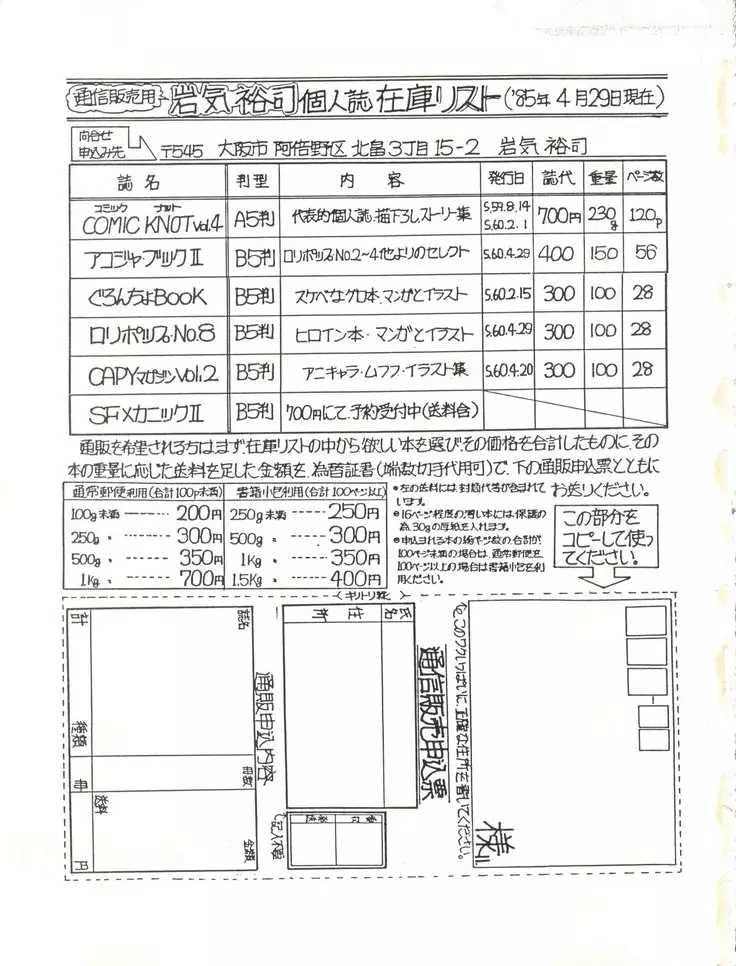 通信販売用 岩気裕司 個人誌 在庫リスト ('85年 4月29日現在)
問合せ 申込み先 〒545 大阪市 阿倍野区 北畠3丁目15-2 岩気 裕司
誌名 判型 内容 発行日 誌代 重量 ページ数
コミック ノット
COMIC KNOT vol.4 A5判 代表的個人誌.描下ろしストーリー集 S.59.8.14 S.60.2.1 700円 230g 120p
アコジャ・ブックⅡ B5判 ロリポップスNo.2~4他よりのセレクト S.60.4.29 400 150 56
ぐろんちょBooK B5判 スケベなグロ本.マンガとイラスト S.60.2.15 300 100 28
ロリポップス・No.8 B5判 ヒロイン本・マンガとイラスト S.60.4.29 300 100 28
CAPYマガジン Vol.2 B5判 アニキャラ・ムフフ・イラスト集 S.60.4.20 300 100 28
SFメカニックⅡ B5判 700円にて、予約受付中(送料含)
通販を希望される方はまず、在庫リストの中から欲しい本を選び、その価格を合計したものに、その
本の重量に応じた送料を足した金額を、為替証書(端数切手代用可)で、下の通販申込票とともに
お送りください。
通常郵便利用(合計100p未満)
100g未満 ------ 200円
250g 〃 ------ 300円
500g 〃 ------ 350円
1kg 〃 ------ 700円
書籍小包利用(合計100ページ以上)
250g未満 ----- 250円
500g 〃 ----- 300円
1kg 〃 ----- 350円
1.5kg 〃 ----- 400円
●左の送料には、封筒代等が含まれて
います。
●16ページ程度の薄い本には、保護の
為、30gの厚紙を入れます。
●申込まれる本の総ページ数の合計が、
100ページ未満の場合は、通常郵便を、
100ページ以上の場合は書籍小包を利
用ください。
この部分を
コピーして使っ
てください。
キリトリ線
このワクいっぱいに、正確な住所を書いてください。
様
通信販売申込票
氏名
住所
記入不要
通販申込内容
誌名
冊数
金額
計
種類
冊
送料
円